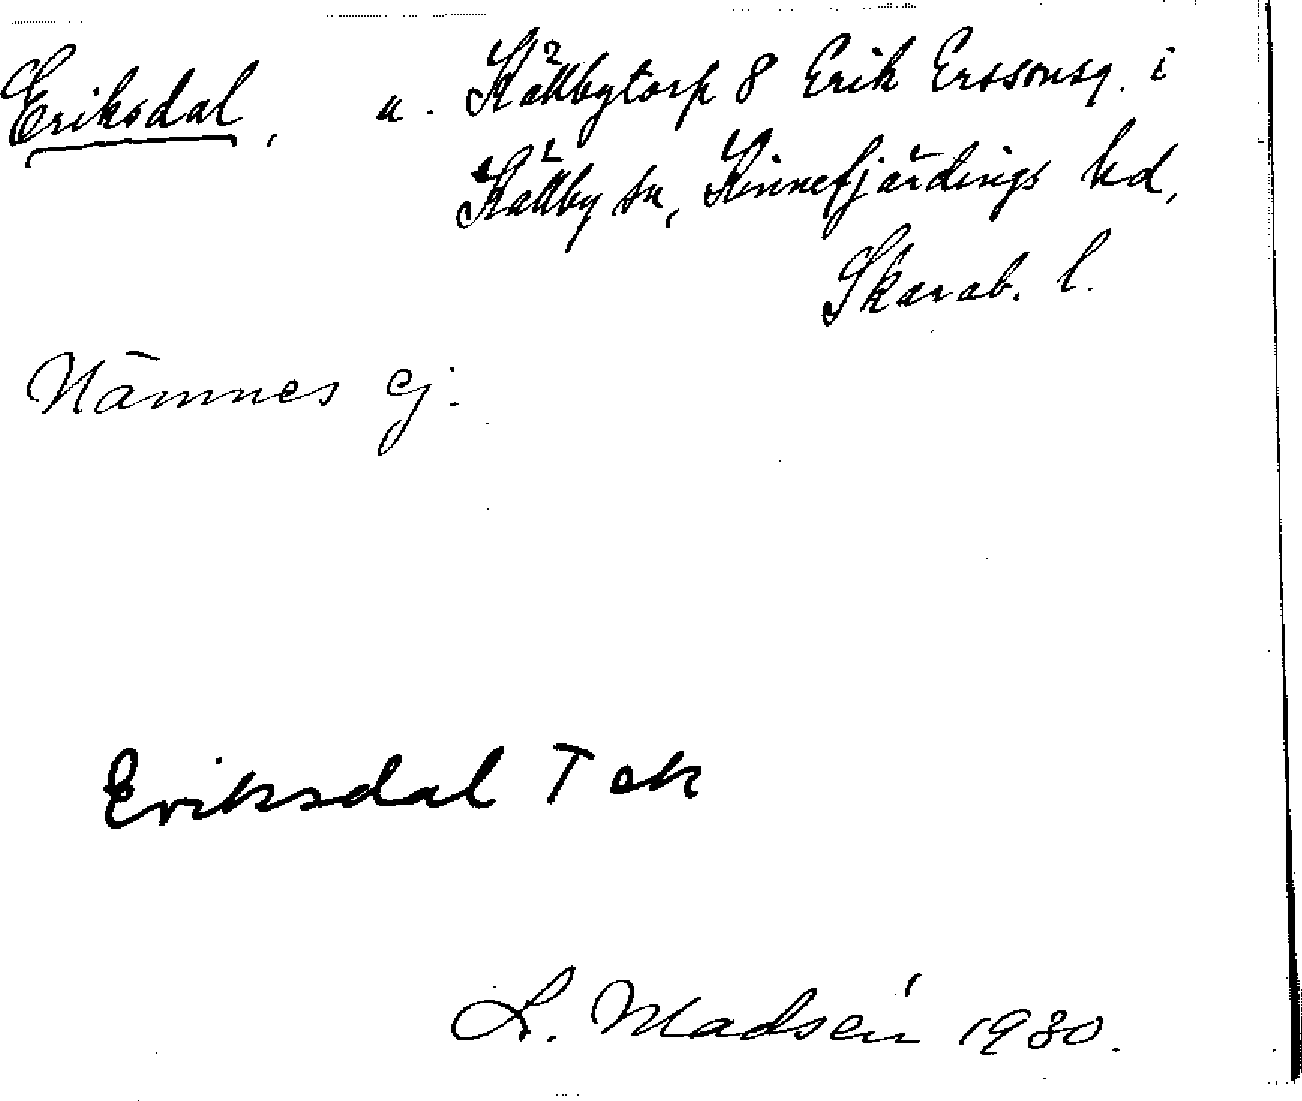 Eriksdal, u. Källbytorp 8 Erik Erssonsg. i
Källby sn, Kinnefjärdings hd,
Skarab. l.
Nämnes ej.
Eriksdal T ek
L. Madsén 1930.